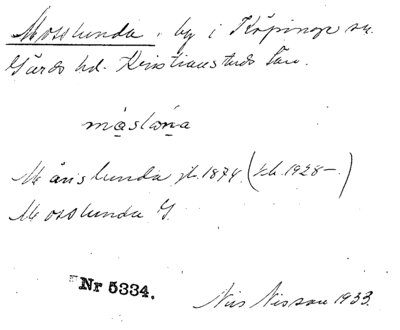 Mosslunda, by i Köpinge sn.
Gärds hd. Kristianstads län.
måslona
Månslunda jb. 1874 (kb. 1928-)
Mosslunda G.
Nr 5334.
Nils Nilsson 1933.